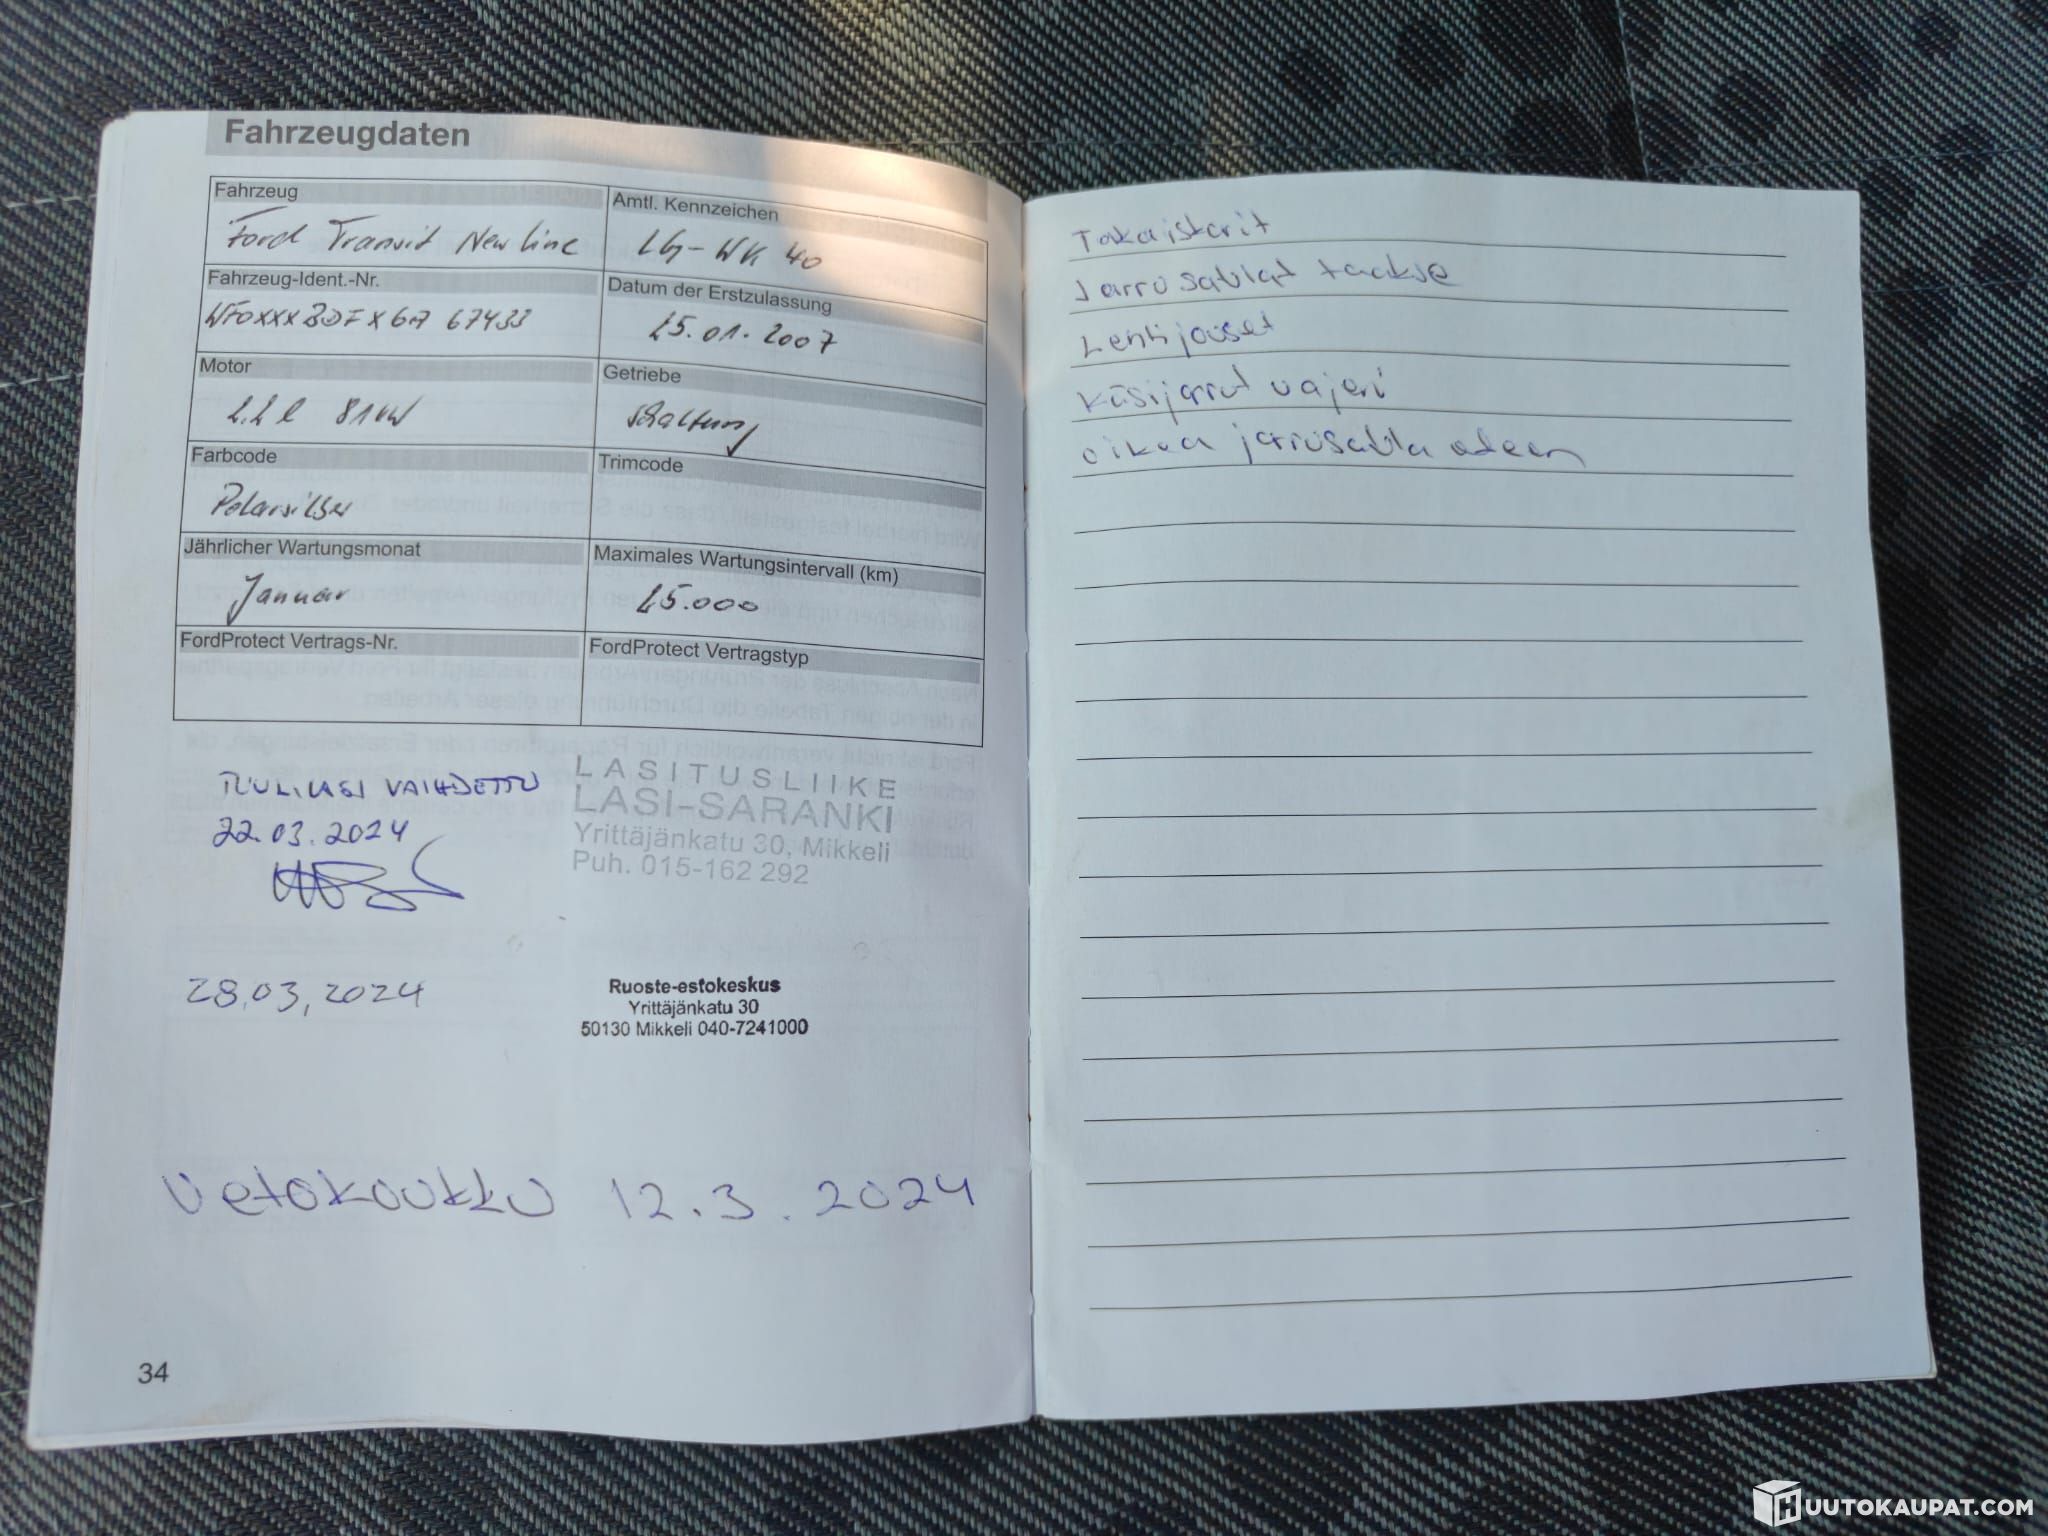 Fahrzeugdaten
Fahrzeug
Ford Transit New Line
Amtl. Kennzeichen
WK 40
Fahrzeug-Ident.-Nr.
WF0XXXBDFX6A 67433
Datum der Erstzulassung
25.01.2007
Motor
2.2 l 81 kW
Getriebe
Schaltung
Farbcode
Polarsilber
Trimcode
Jährlicher Wartungsmonat
Januar
Maximales Wartungsintervall (km)
25.000
FordProtect Vertrags-Nr.
FordProtect Vertragstyp
TUULILASI VAIHDETTU
22.03.2024
LASITUSLIIKE
LASI-SARANKI
Yrittäjänkatu 30, Mikkeli
Puh. 015-162 292
28.03,2024
Ruoste-estokeskus
Yrittäjänkatu 30
50130 Mikkeli 040-7241000
Vetokoukku 12.3.2024
34
Takaiskarit
Jarrusatulat taakse
Lehtijouset
Käsijarrut vajeri
oikea jarrusatula eteen
HUUTOKAUPAT.COM